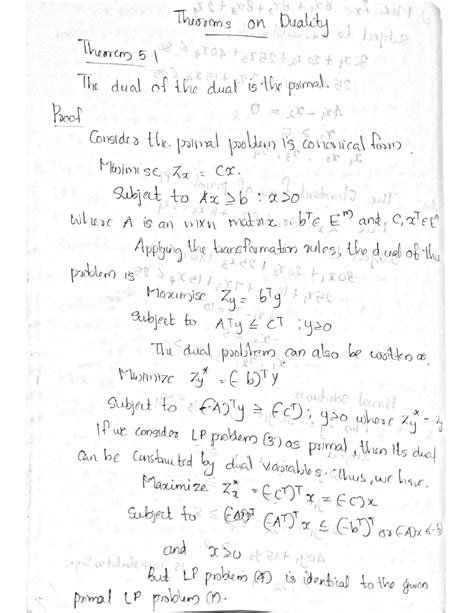 Theorems on Duality
Theorem 5.1
The dual of the dual is the primal.
Proof
Consider the primal problem is canonical form.
Minimise Zx = Cx.
Subject to Ax ≥ b : x≥0
where A is an mxn matrix. bᵀ∈ Eᵐ) and, C, xᵀ∈ Eⁿ
Applying the transformation rules, the dual of the
problem is
Maximise Zy = bᵀy
Subject to Aᵀy ≤ Cᵀ ; y≥0
The dual problem can also be written as.
Minimize Zy* = (-b)ᵀY
Subject to (-A)ᵀy ≥ (-Cᵀ) ; y≥0 where Zy* = -Zy
If we consider LP problem (3) as primal, then its dual
can be constructed by dual variables. Thus, we have.
Maximize Zx* = (-Cᵀ)ᵀx = (-C)x
Subject to (-Aᵀ)ᵀx ≤ (-bᵀ)ᵀ or (-A)x ≤ -b
and x≥0
But LP problem (4) is identical to the given
primal LP problem (1).